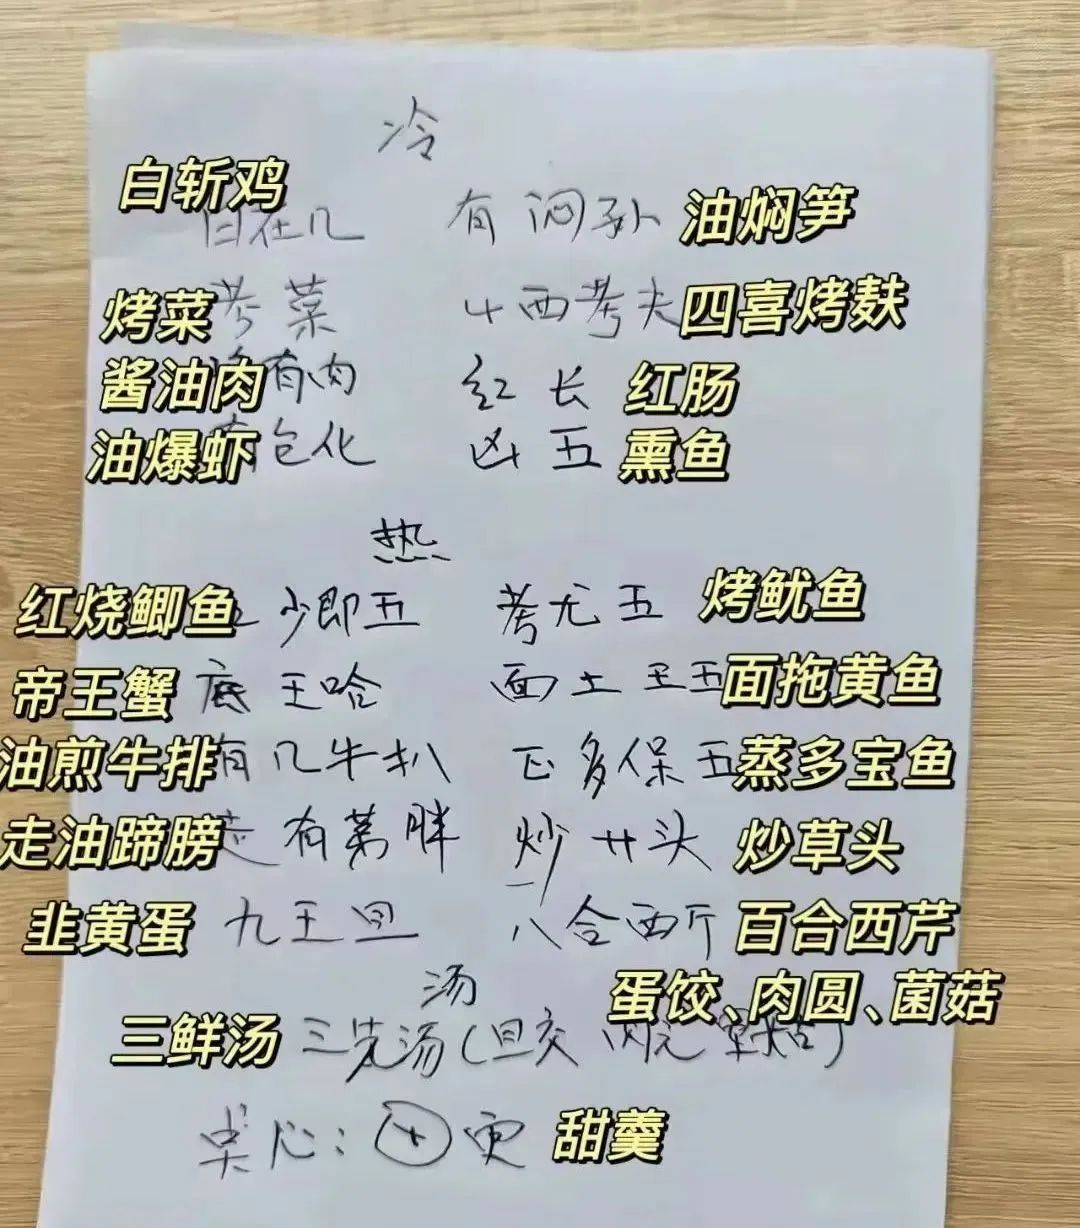 冷
白斩鸡
白在几 有闷孙 油焖笋
烤菜 考菜 四西考夫 四喜烤麸
酱油肉 有肉 红长 红肠
油爆虾 包化 凶五 熏鱼
热
红烧鲫鱼 少即五 考尤五 烤鱿鱼
帝王蟹 底王哈 面土王五 面拖黄鱼
油煎牛排 有几牛扒 正多保五 蒸多宝鱼
走油蹄膀 走有第胖 炒艹头 炒草头
韭黄蛋 九王旦 八合西斤 百合西芹
汤 蛋饺、肉圆、菌菇
三鲜汤 三先汤(旦交 肉元
点心: 田更 甜羹